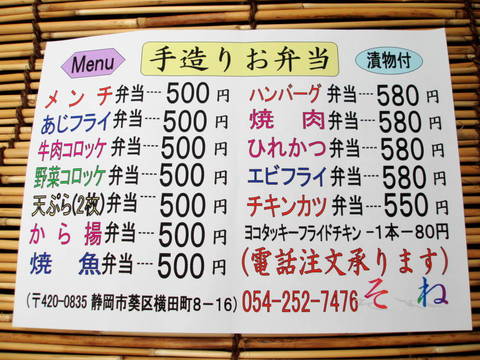 Menu 手造りお弁当 漬物付
メンチ弁当----500円
あじフライ弁当----500円
牛肉コロッケ弁当---500円
野菜コロッケ弁当---500円
天ぷら(2枚)弁当---500円
から揚弁当---500円
焼魚弁当---500円
ハンバーグ弁当---580円
焼肉弁当---580円
ひれかつ弁当---580円
エビフライ弁当---580円
チキンカツ弁当---550円
ヨコタッキーフライドチキン-1本-80円
(電話注文承ります)
(〒420-0835 静岡市葵区横田町8-16) 054-252-7476 そね